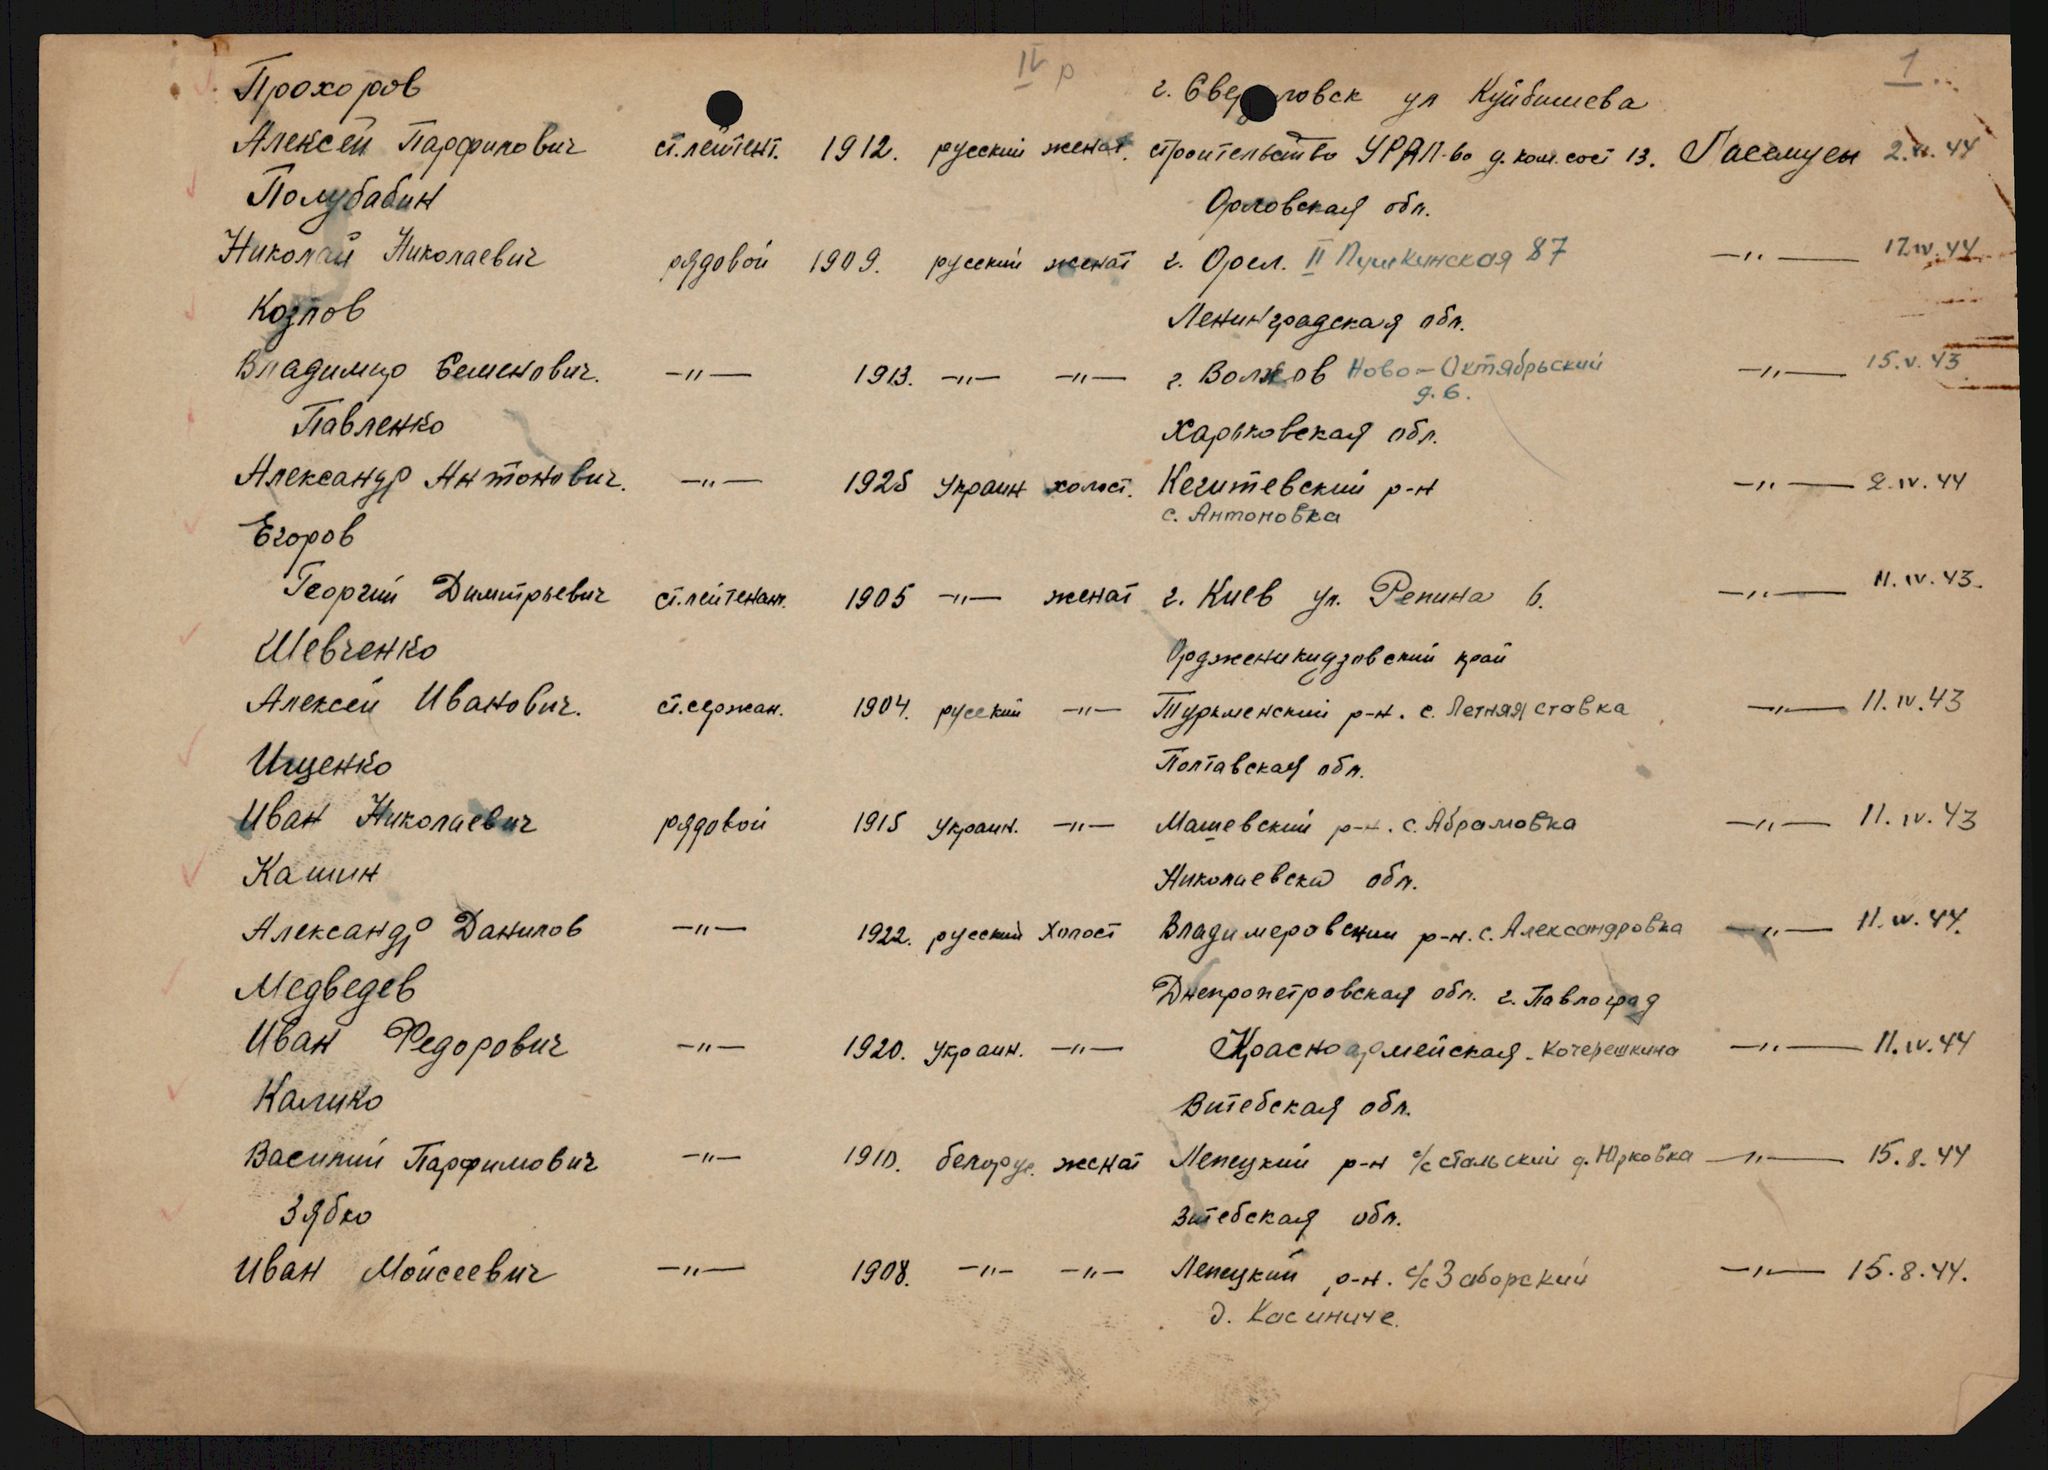 IV р 1
Прохоров г. Све ловск ул Куйбишева
Алексей Парфирович ст.лейтент. 1912. русский женат. строительство д. ком. сост 13. 44
Полубабин Орловская обл.
Николай Николаевич рядовой 1909. русский женат г. Орел. II Пушкинская 87 —„— 12.IV.44
Козлов Ленинградская обл.
Владимир Семенович. —„— 1913. —„— —„— г. Волхов Ново-Октябрьский —„— 15.V.43
д. 6.
Павленко Харьковская обл.
Александр Антонович. —„— 1925 Украин холост. Кегитевский р-н —„— 2.IV.44
с. Антоновка
Егоров
Георгий Димитрьевич ст.лейтенант. 1905 —„— женат г. Киев ул. Репина 6. —„— 11.IV.43.
Шевченко Орджоникидзовский край
Алексей Иванович. ст.сержан. 1904. русский —„— Туркменский р-н. с. Летняя ставка —„— 11.IV.43
Ищенко Полтавская обл.
Иван Николаевич рядовой 1915 Украин. —„— Машевский р-н. с. Абрамовка —„— 11.IV.43
Кашин Николаевска обл.
Александр Данилов —„— 1922. русский Холост Владимеровский р-н. с. Александровка —„— 11.IV.44.
Медведев Днепропетровская обл. г. Павлоград
Иван Федорович —„— 1920. Украин. —„— Красноармейская. Кочерешкина —„— 11.IV.44
Калико Витебская обл.
Василий Парфимович —„— 1910. белорус. женат Лепецкий р-н с/с Стальский д. Юрковка —„— 15.8.44
Зябко Витебская обл.
Иван Мойсеевич —„— 1908. —„— —„— Лепецкий р-н. с/с Заборский —„— 15.8.44.
д. Косиниче.